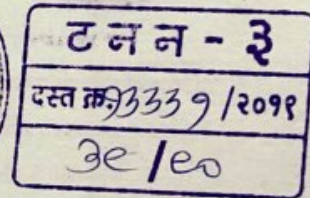 ट न न - ३
दस्त क्र. १३३३१/२०१९
३९/९०